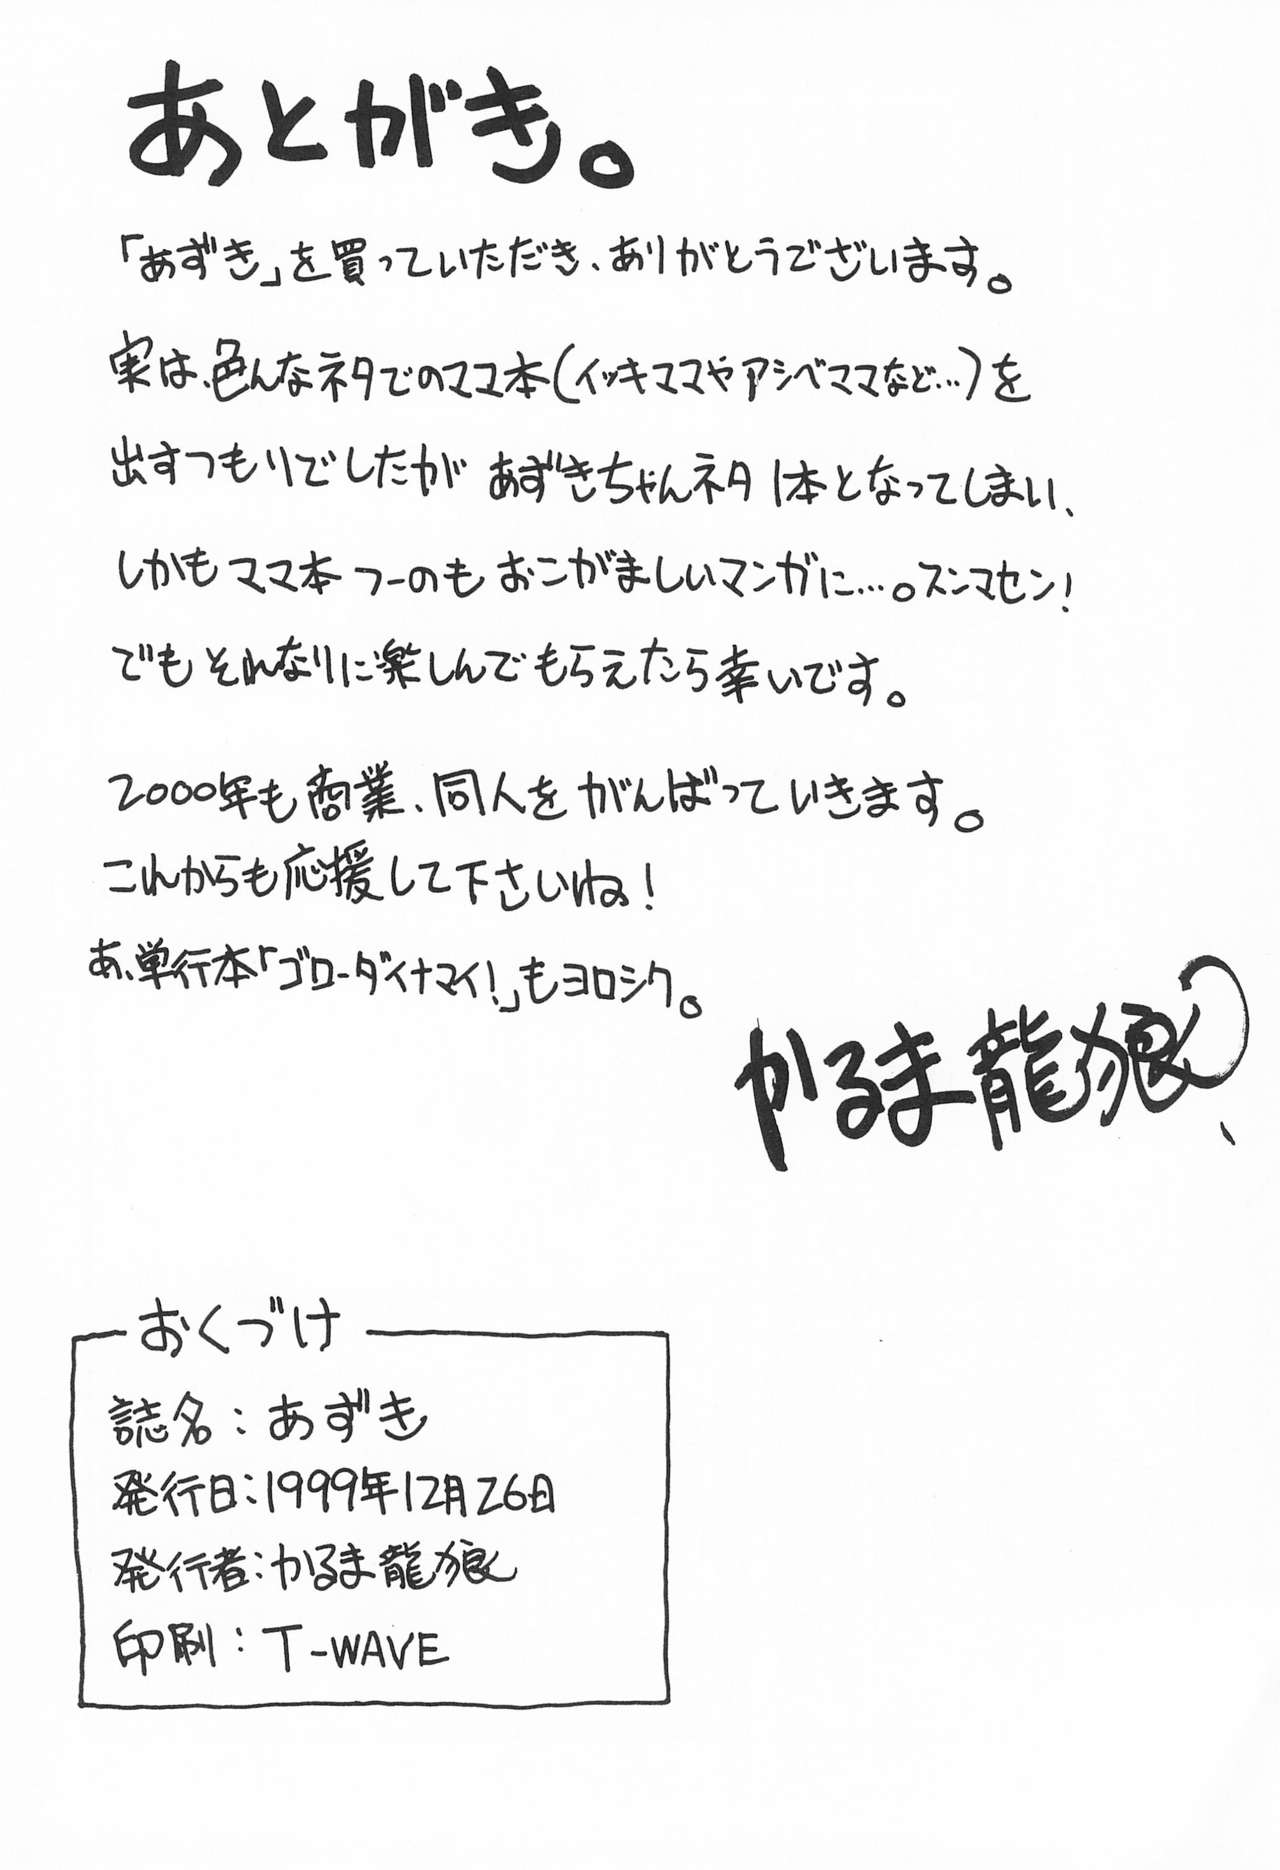 あとがき。
「あずき」を買っていただき、ありがとうございます。
実は、色んなネタでのママ本(イッキママやアシベママなど…)を
出すつもりでしたが あずきちゃんネタ1本となってしまい、
しかもママ本つーのもおこがましいマンガに…。スンマセン!
でもそれなりに楽しんでもらえたら幸いです。
2000年も商業、同人をがんばっていきます。
これからも応援して下さいね!
あ、単行本「ゴローダイナマイ!」もヨロシク。
かるま龍狼
おくづけ
誌名:あずき
発行日:1999年12月26日
発行者:かるま龍狼
印刷:T-WAVE